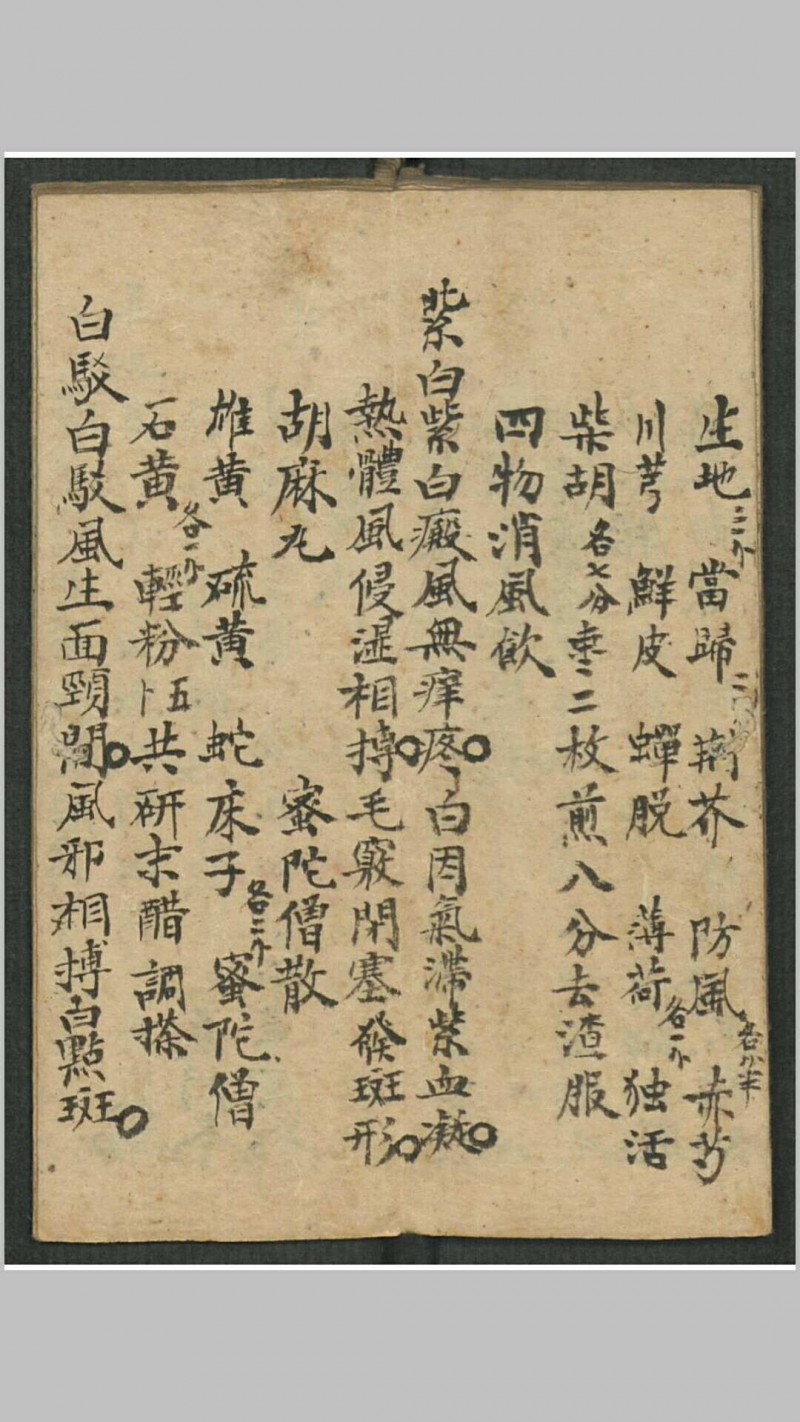 生地三个 當歸二 荆芥 防風各 半 赤芍
川芎 鮮皮 蟬脱 薄荷各一个 独活
柴胡各七分 枣二枚煎八分去渣服
四物消風飲
紫白紫白癜風無痒疼白因氣滯紫血凝
熱體風侵湿相搏毛竅閉塞發斑形
胡麻丸 蜜陀僧散
雄黄 硫黄 蛇床子各二个 蜜陀僧
石黄各一个 輕粉卜五共研末醋調搽
白駁白駁風生面頸間風邪相搏白點斑